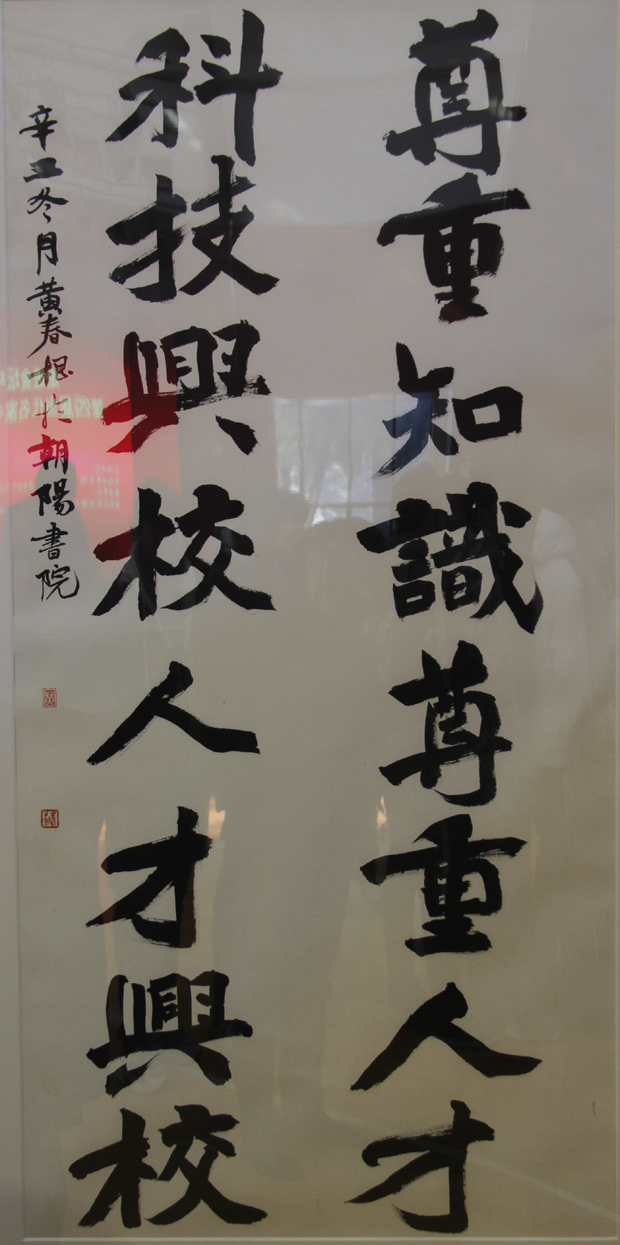 尊重知識尊重人才
科技興校人才興校
辛丑冬月黃春根於朝陽書院